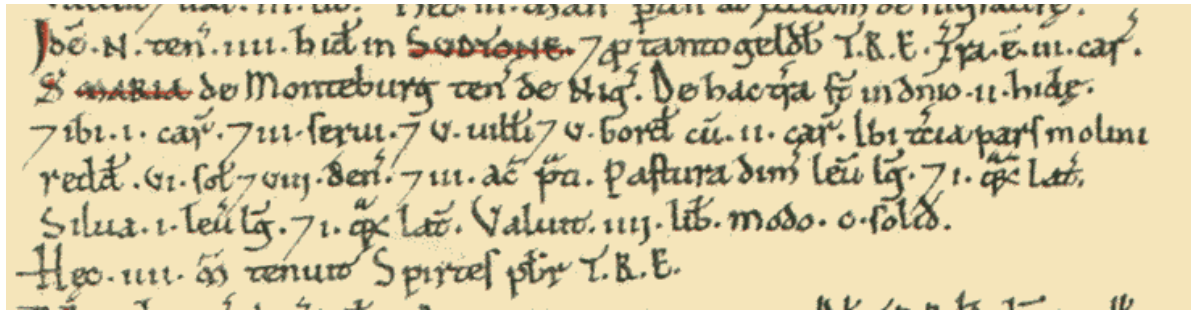 Idē. N. ten̄. iiii. hid̄ in SUDTONE. ⁊ ꝓ tanto geldb̄ T.R.E. Tra. ē. iii. car̄.
S MARIA de Monteburg ten̄ de Niḡ. De hac tra s̄t in dn̄io. ii. hidę.
⁊ ibi. i. car̄. ⁊ iii. serui. ⁊ v. uill̄i ⁊ v. bord̄ cū. ii. car̄. Ibi tcia pars molini
redd̄. vi. sol̄ ⁊ viij. den̄. ⁊ iii. ac̄ p̄ti. Pastura dim̄ leū lḡ. ⁊ i. qr̄ lat̄.
Silua. i. leū lḡ. ⁊ i. qr̄ lat̄. Valuit. iiij. lib̄. modo. c. solid̄.
Hec. iiii. m̄ tenuit Spirtes pb̄r T.R.E.